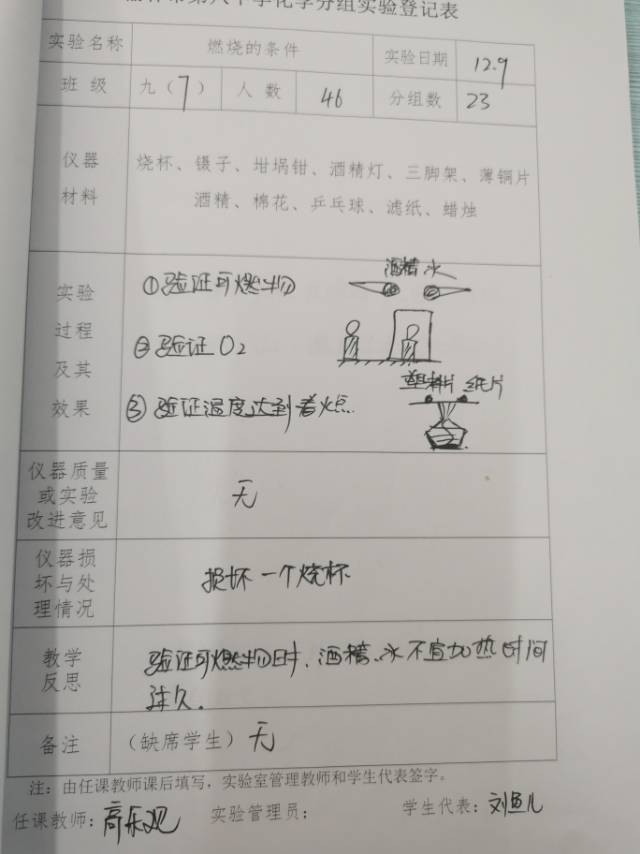 第八中学化学分组实验登记表
实验名称 燃烧的条件 实验日期 12.9
班级 九(7) 人数 46 分组数 23
仪器材料 烧杯、镊子、坩埚钳、酒精灯、三脚架、薄铜片
酒精、棉花、乒乓球、滤纸、蜡烛
实验过程及其效果
酒精 水
①验证可燃物
②验证O2
塑料片 纸片
③验证温度达到着火点.
仪器质量或实验改进意见 无
仪器损坏与处理情况 损坏一个烧杯
教学反思 验证可燃物时、酒精、水不宜加热时间
过久.
备注 (缺席学生) 无
注：由任课教师课后填写，实验室管理教师和学生代表签字。
任课教师: 实验管理员: 学生代表: